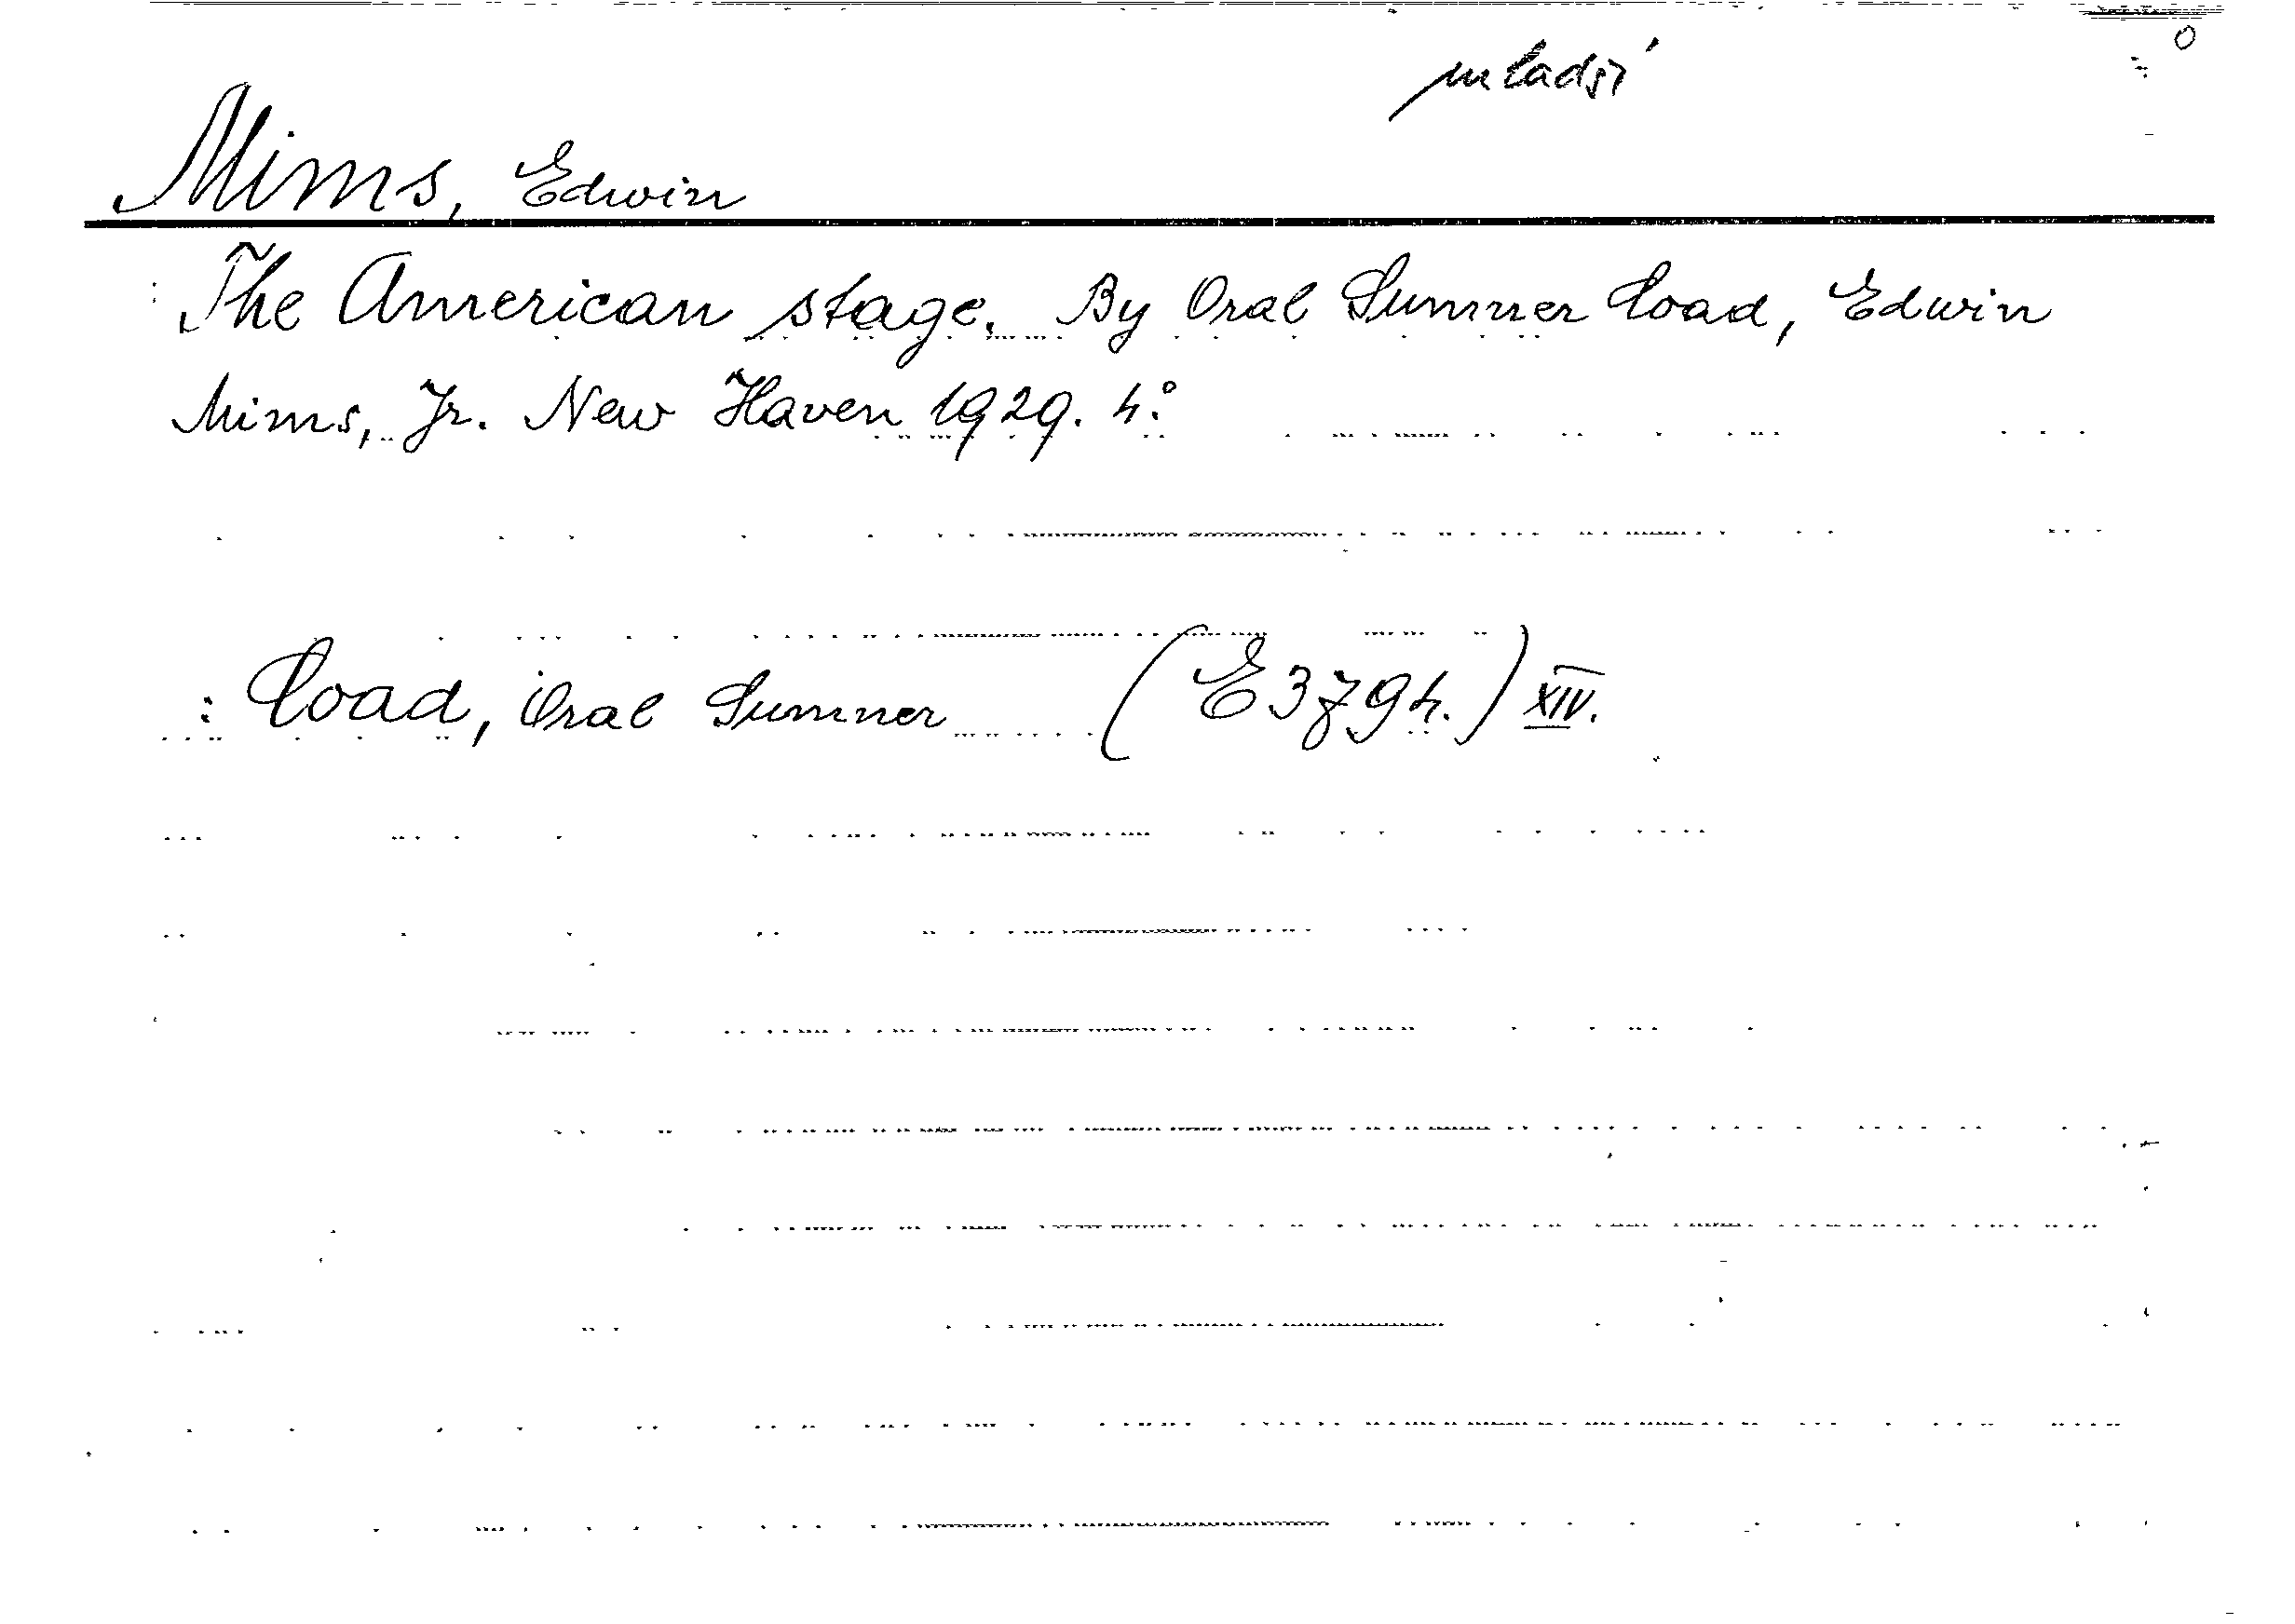 mladší
Mims, Edwin
The American stage. By Oral Sumner Coad, Edwin
Mims, Jr. New Haven 1929. 4°.
: Coad, Oral Sumner (E 3794.) XIV.